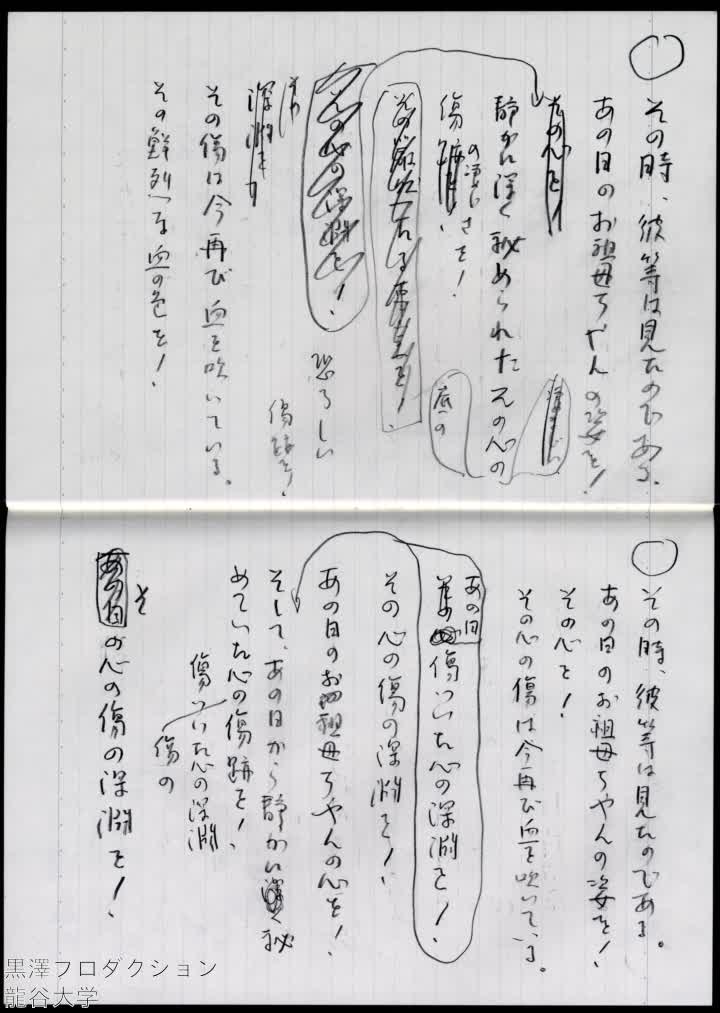 その時、彼等は見たのである。
あの日のお祖母ちやんの姿を!
その心を!
静かに深く秘められたその心の
底の
傷跡を!
の凄じさを!
その心の深淵を!
恐ろしい
傷跡を!
その
深淵を!
その傷は今再び血を吹いている。
その鮮烈な血の色を!
その時、彼等は見たのである。
あの日のお祖母ちやんの姿を!
その心を!
その心の傷は今再び血を吹いている。
あの日
傷ついた心の深淵を!
その心の傷の深淵を!
あの日のお祖母ちやんの心を!
そして、あの日から静かに深く秘
めていた心の傷跡を!
傷ついた心の深淵
傷の
そ
あの日
の心の傷の深淵を!
黒澤プロダクション
龍谷大学